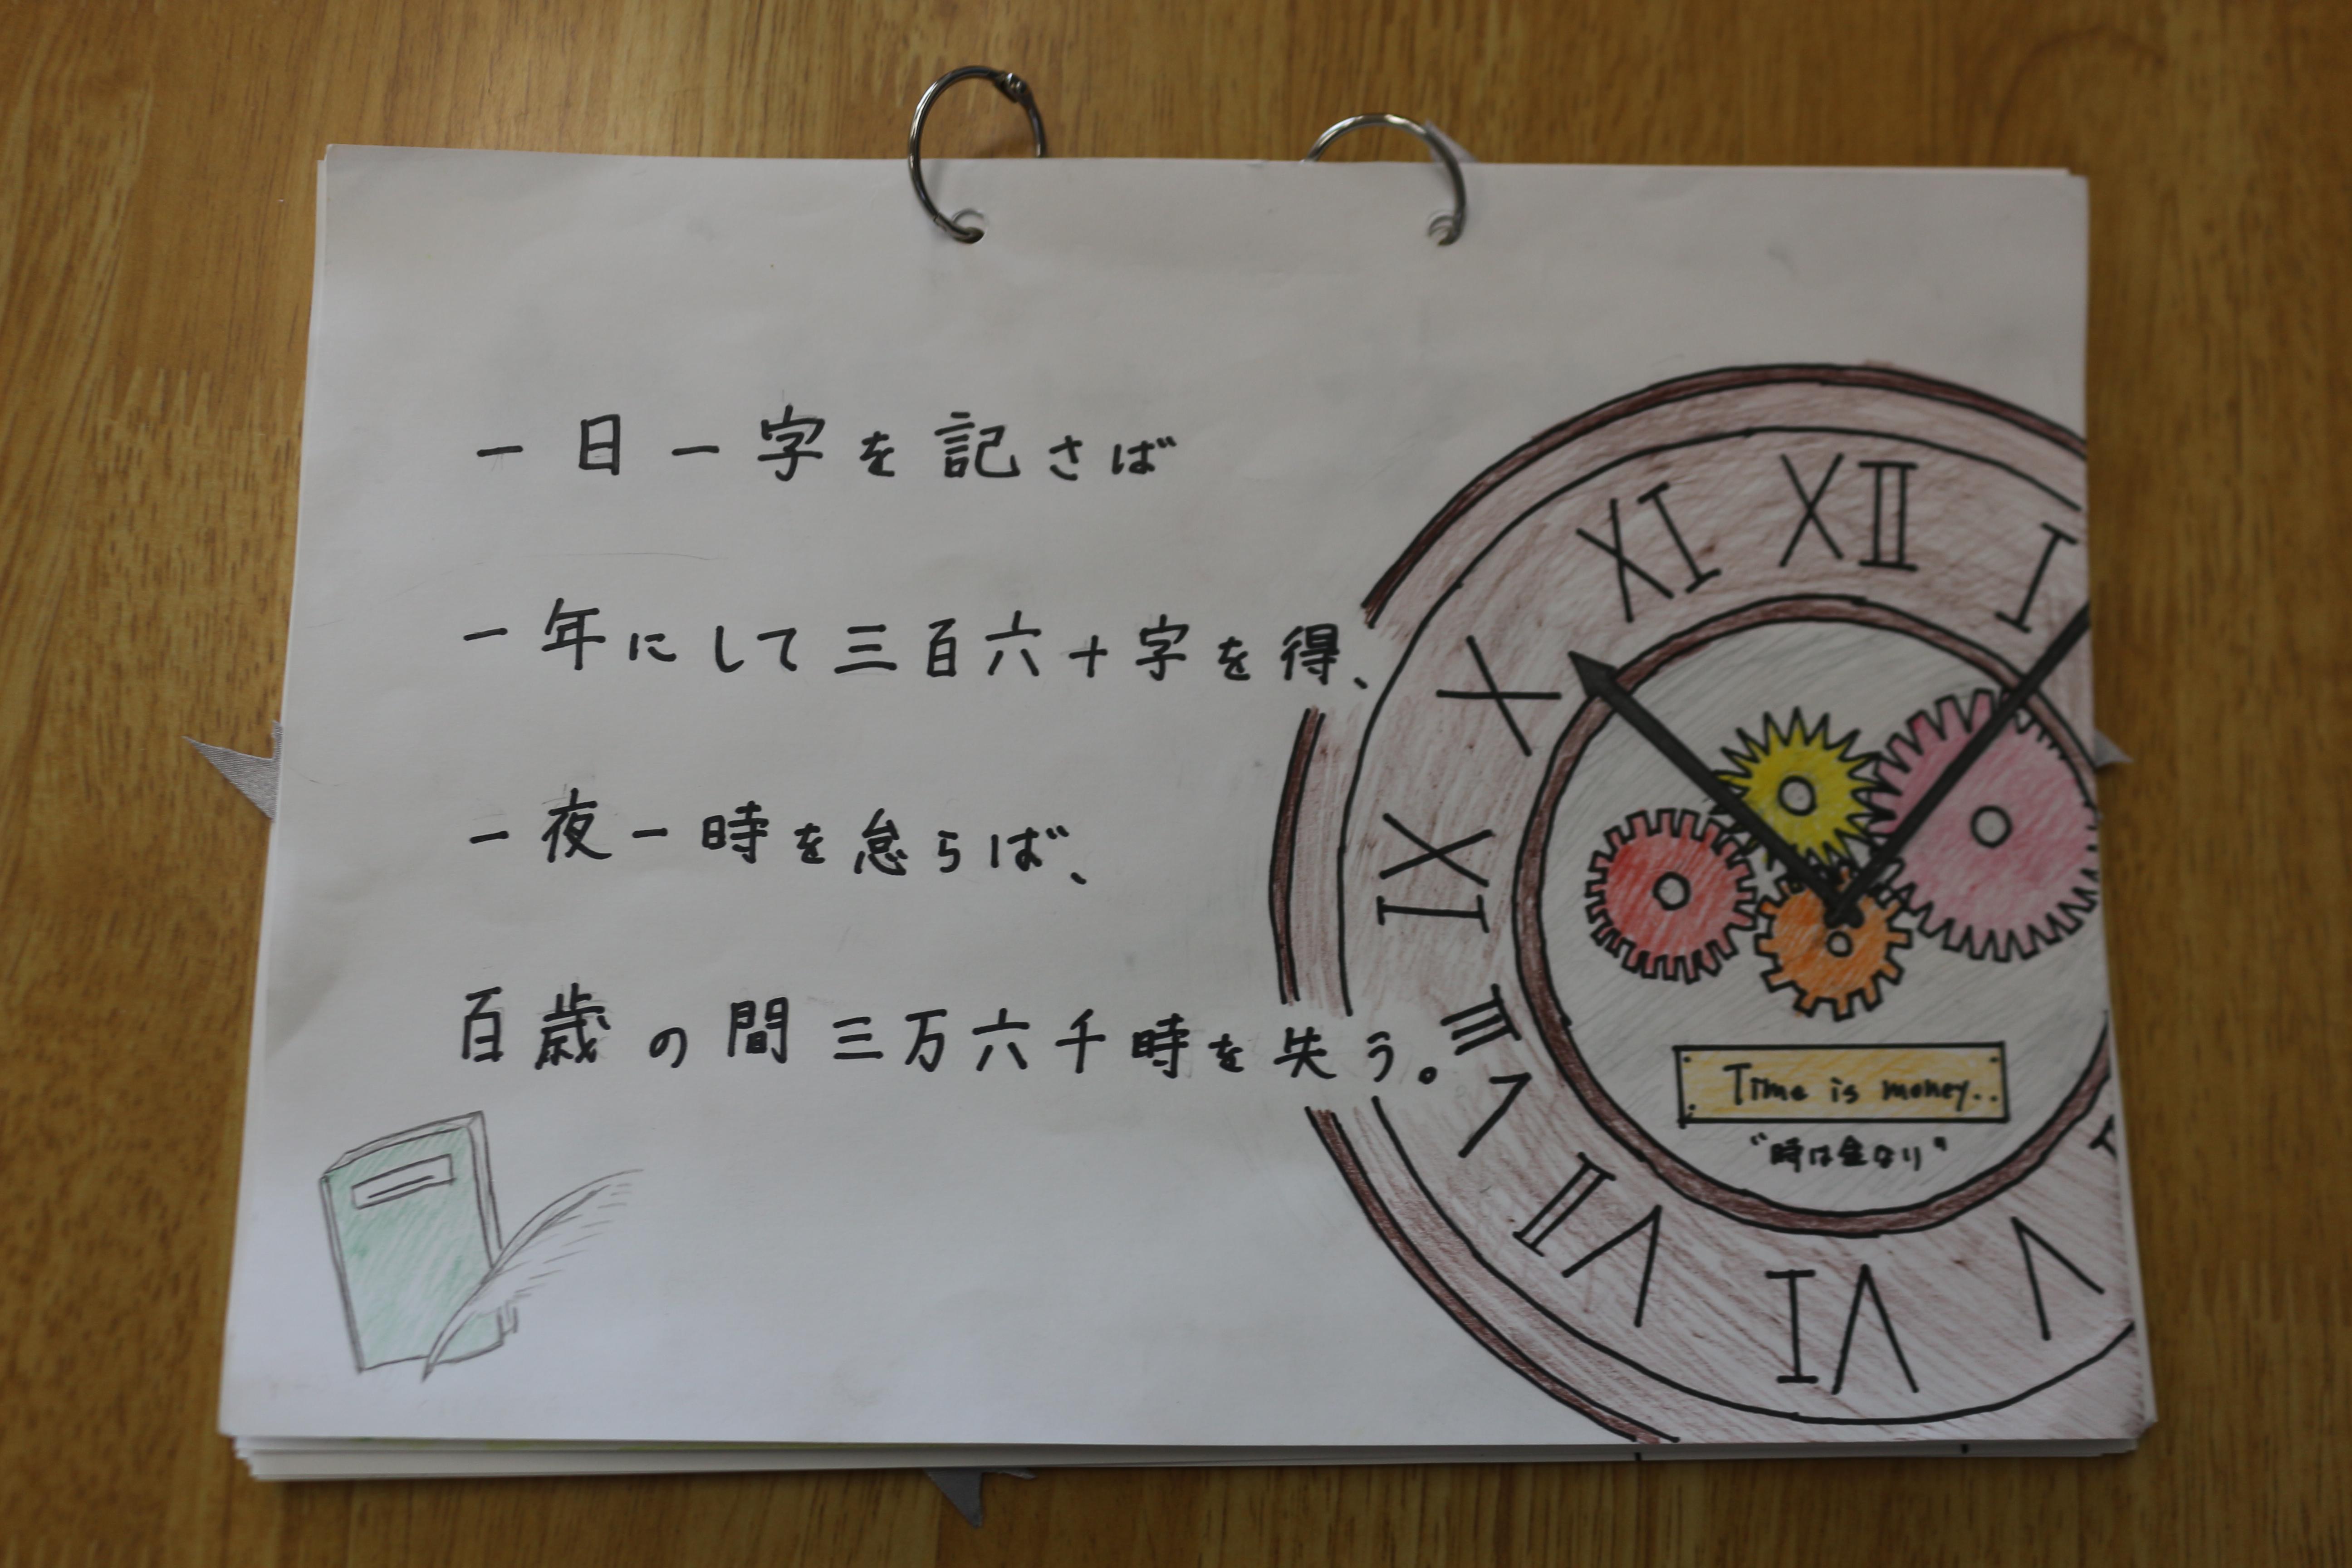 一日一字を記さば
一年にして三百六十字を得、
一夜一時を怠らば、
百歳の間三万六千時を失う。
XII
I
XI
X
IX
VIII
VII
VI
V
Time is money..
"時は金なり"